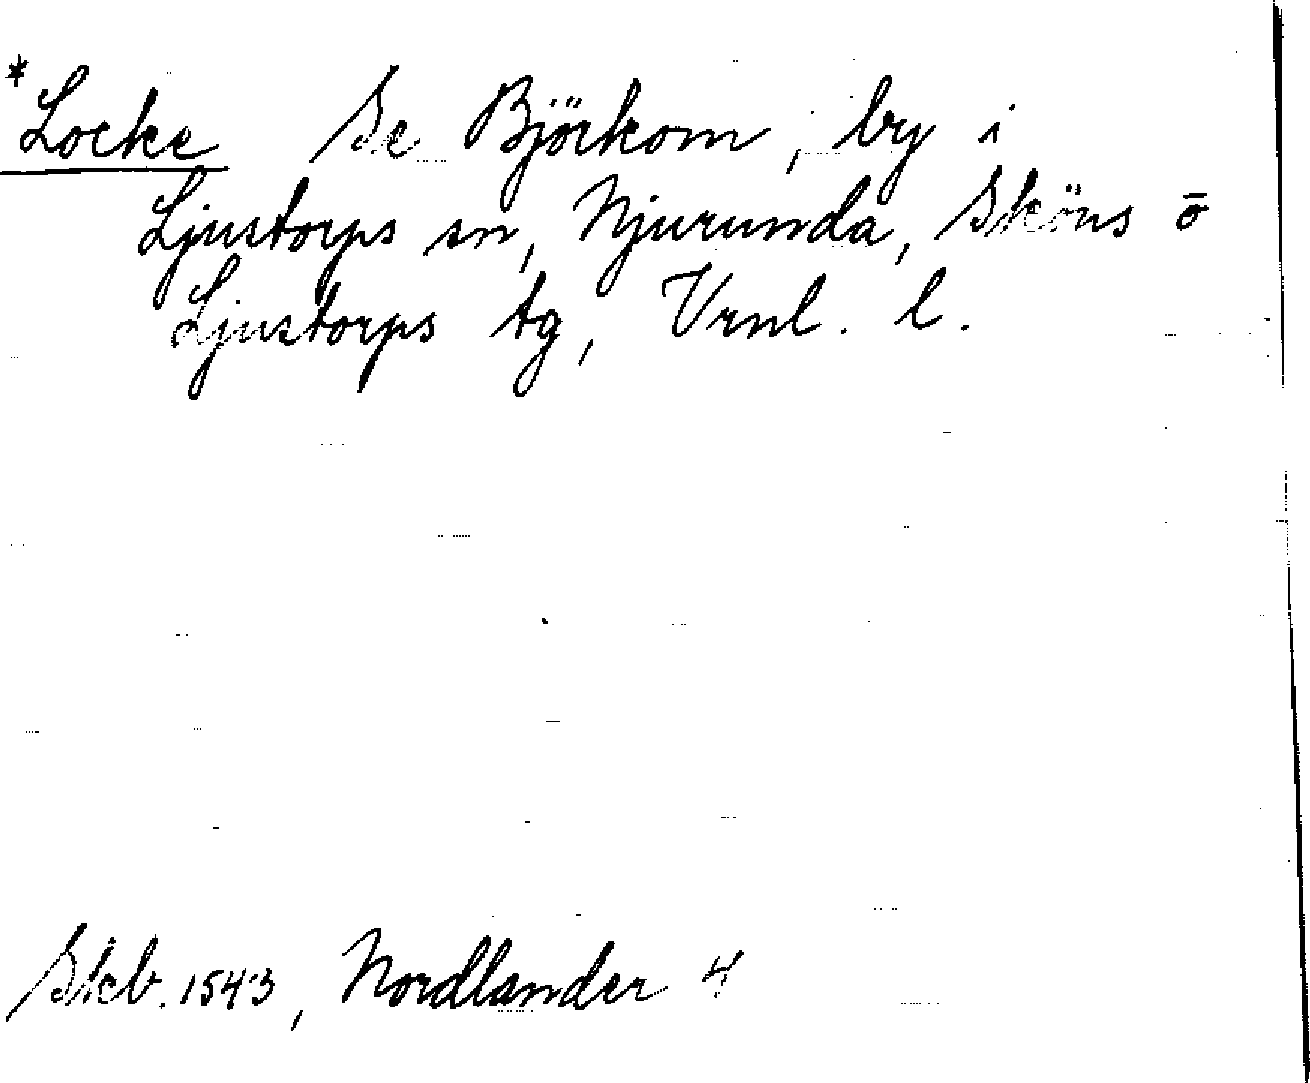 *Locke Se Björkom, by i
Ljustorps sn, Njurunda, Sköns ō
Ljustorps tg, Vrnl. l.
Skb. 1543, Nordlander 4